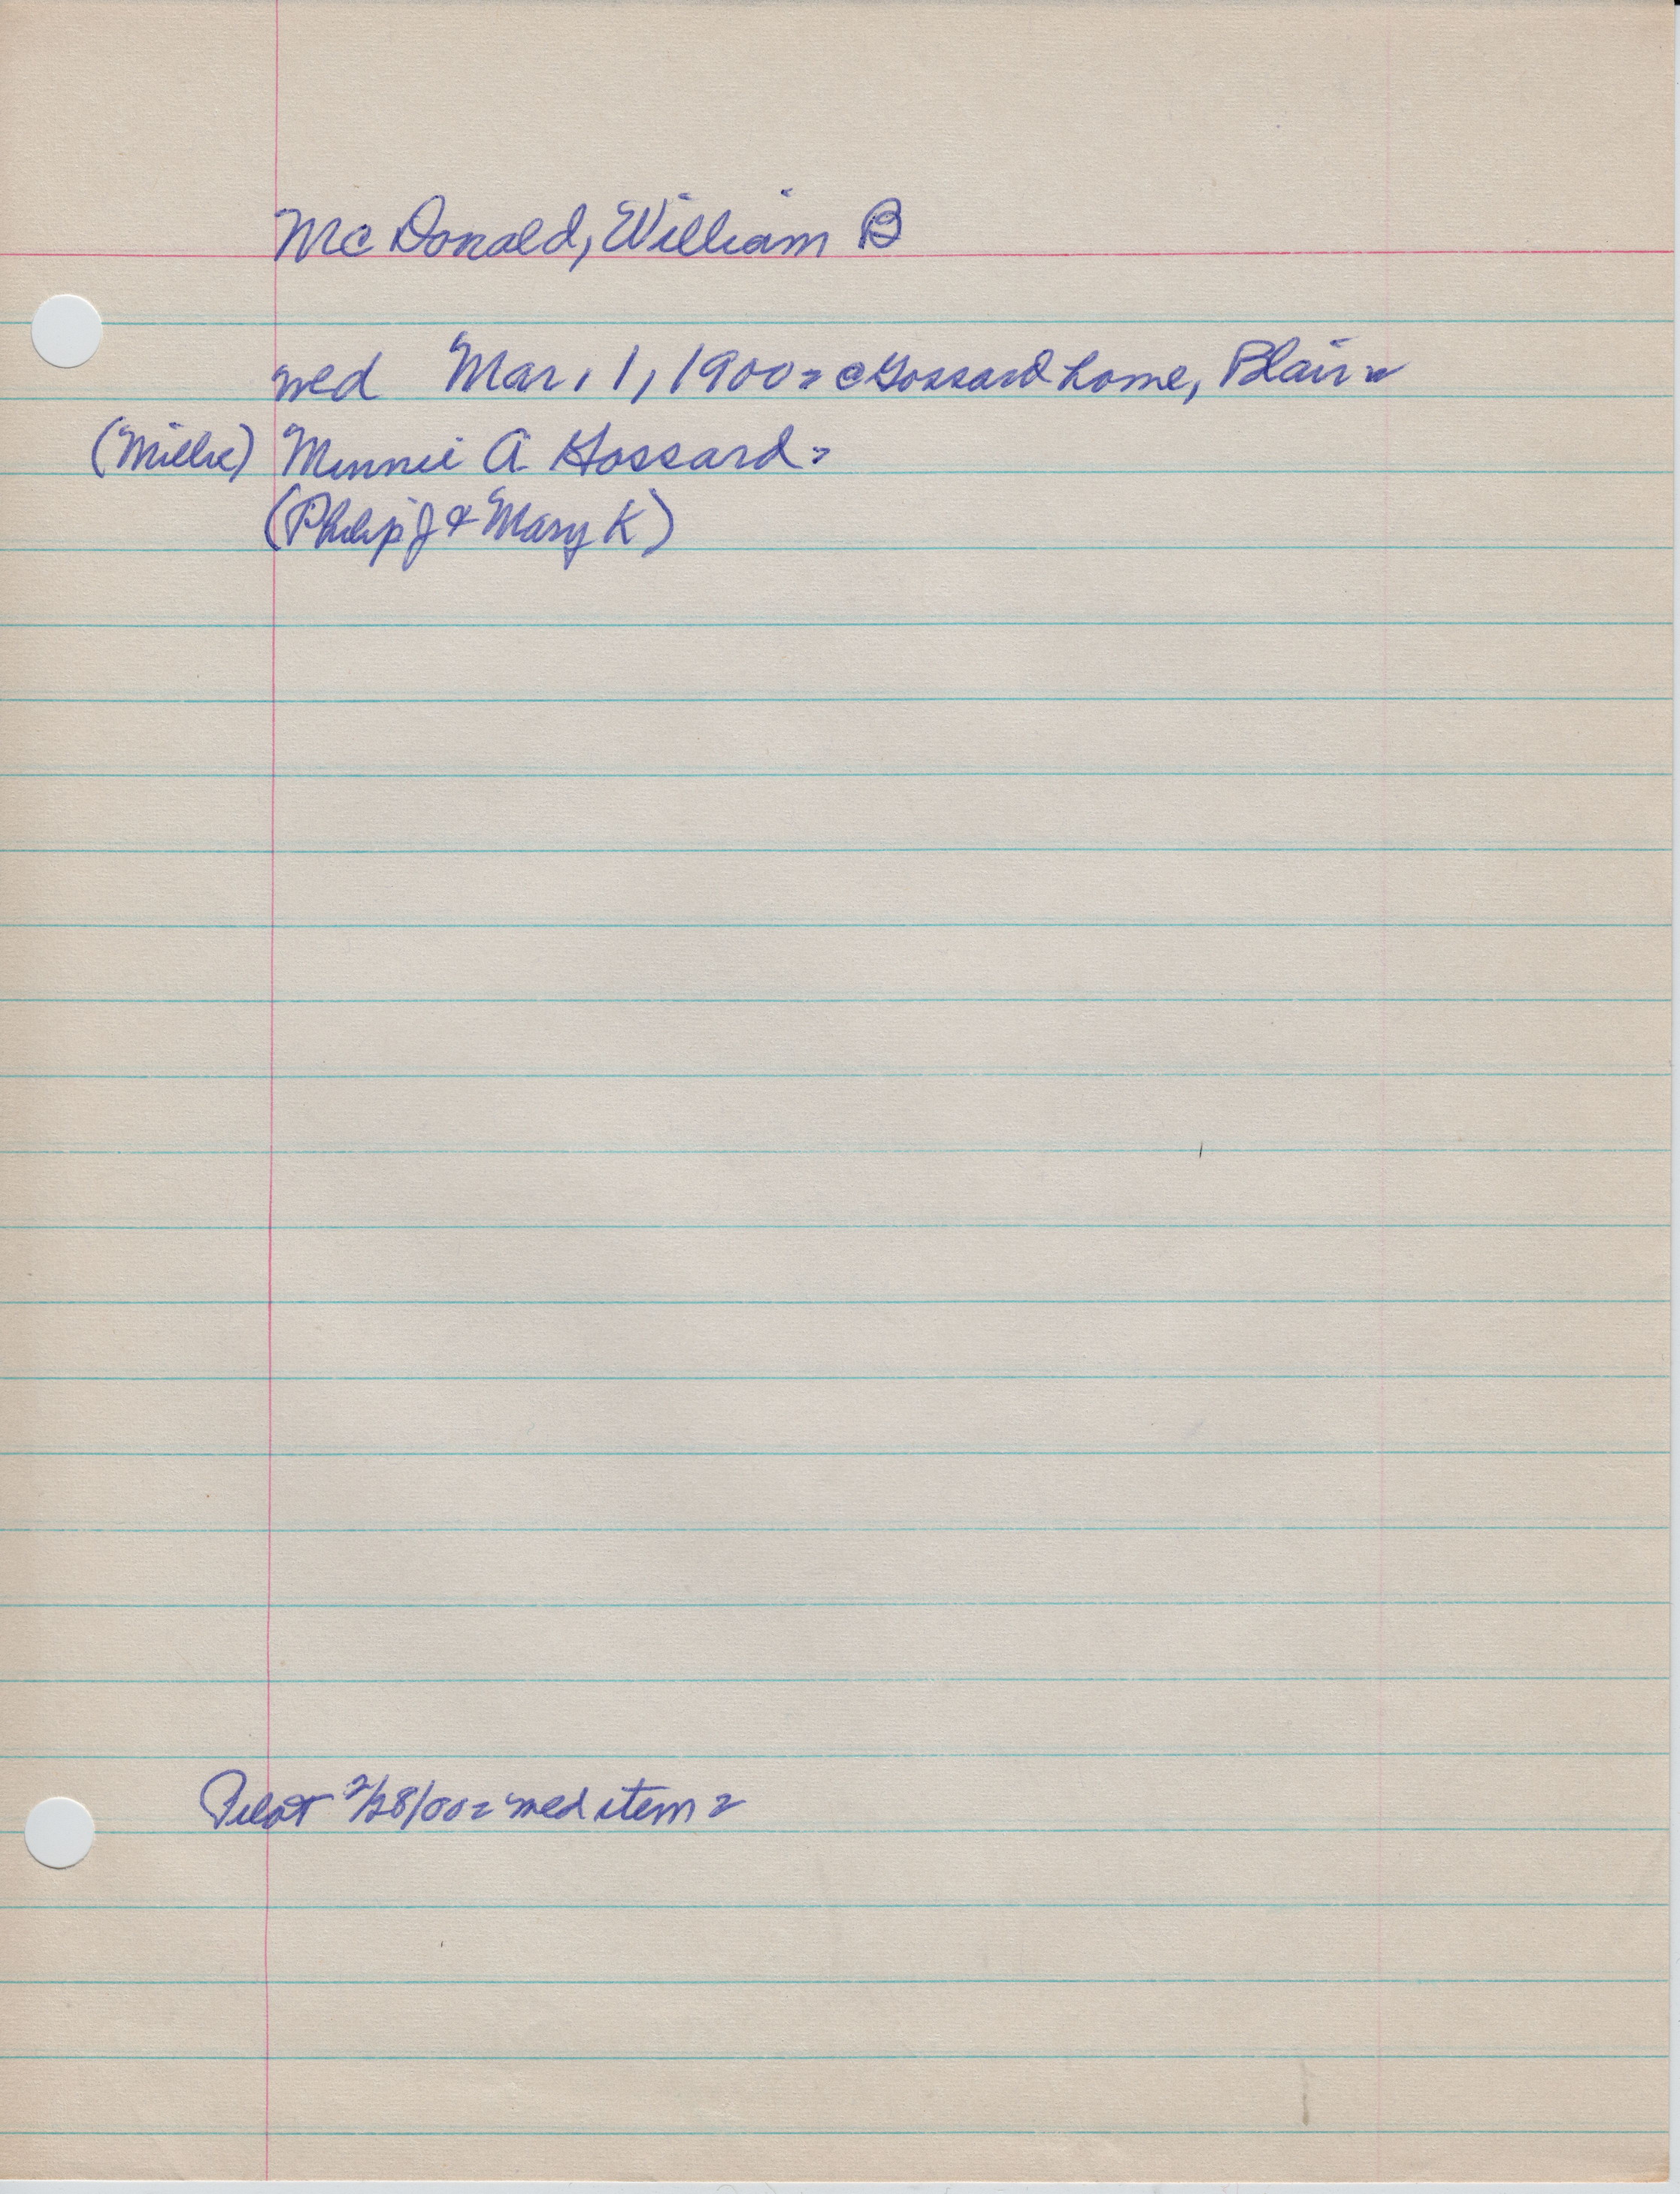 McDonald, William B
wed Mar. 1, 1900= @ Gossard home, Blair=
(Millie) Minnie A Gossard=
(Philip J & Mary K)
Pilot 2/28/00= wed item=